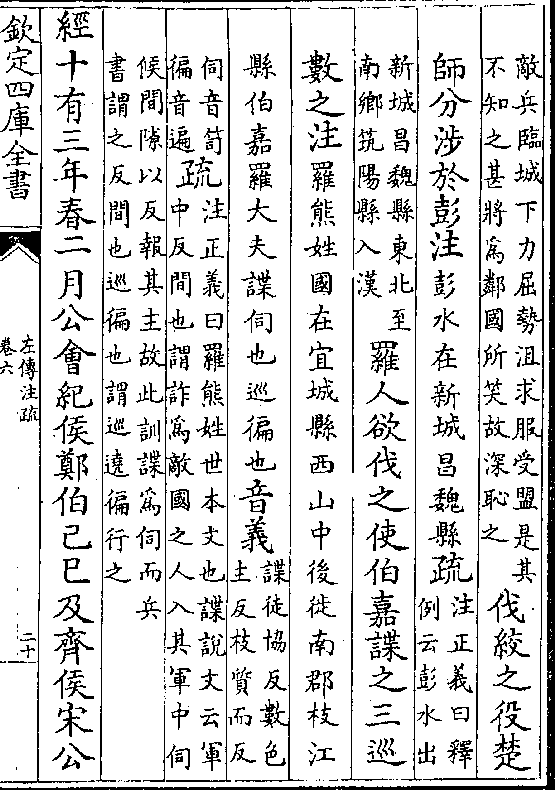 敵兵臨城下力屈勢沮求服受盟是其
不知之甚將為鄰國所笑故深恥之
伐絞之役楚
師分涉於彭注彭水在新城昌魏縣疏
注正義曰釋
例云彭水出
新城昌魏縣東北至
南鄉筑陽縣入漢
羅人欲伐之使伯嘉諜之三巡
數之注羅熊姓國在宜城縣西山中後徙南郡枝江
縣伯嘉羅大夫諜伺也巡徧也音義
諜徒協反數色
主反枝質而反
伺音笥
徧音遍
疏
注正義曰羅熊姓世本文也諜說文云軍
中反間也謂詐為敵國之人入其軍中伺
候間隙以反報其主故此訓諜為伺而兵
書謂之反間也巡徧也謂巡遶徧行之
經十有三年春二月公會紀侯鄭伯己巳及齊侯宋公
欽定四庫全書
左傳注疏
卷六
二十